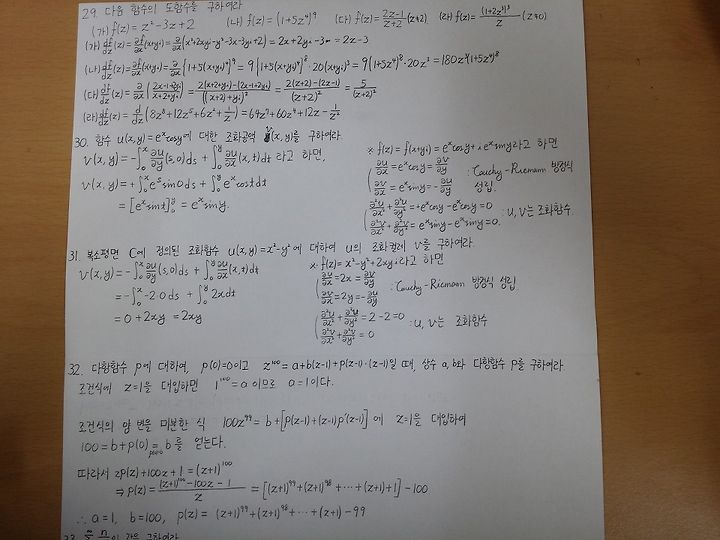 29. 다음 함수의 도함수를 구하여라
(가) f(z) = z²-3z+2 (나) f(z) = (1+5z⁴)⁹ (다) f(z) = (2z-1)/(z+2) (z≠2) (라) f(z) = (1+2z²)³/z (z≠0)
(가) df/dz(z) = ∂f/∂x(x+yi) = ∂/∂x(x²+2xyi-y²-3x-3yi+2) = 2x+2yi-3 = 2z-3
(나) df/dz(z) = ∂f/∂x(x+yi) = ∂/∂x{1+5(x+yi)⁴}⁹ = 9{1+5(x+yi)⁴}⁸·20(x+yi)³ = 9(1+5z⁴)⁸·20z³ = 180z³(1+5z⁴)⁸
(다) df/dz(z) = ∂/∂x((2x-1+2yi)/(x+2+yi)) = (2(x+2+yi)-(2x-1+2yi))/((x+2)+yi)² = (2(z+2)-(2z-1))/(z+2)² = 5/(z+2)²
(라) df/dz(z) = d/dz(8z⁸+12z⁵+6z²+1/z) = 64z⁷+60z⁴+12z-1/z²
30. 함수 u(x,y)=eˣcosy에 대한 조화공액 v(x,y)를 구하여라.
v(x,y) = -∫₀ˣ ∂u/∂y(s,0)ds + ∫₀ʸ ∂u/∂x(x,t)dt 라고 하면,
v(x,y) = +∫₀ˣ eˢsin0ds + ∫₀ʸ eˣcostdt
= [eˣsint]₀ʸ = eˣsiny.
※ f(z) = f(x+yi) = eˣcosy+ieˣsiny라고 하면
∂u/∂x = eˣcosy = ∂v/∂y
∂v/∂x = eˣsiny = -∂u/∂y : Cauchy-Riemann 방정식 성립.
∂²u/∂x²+∂²u/∂y² = +eˣcosy-eˣcosy = 0
∂²v/∂x²+∂²v/∂y² = eˣsiny-eˣsiny = 0. : u, v는 조화함수.
31. 복소평면 C에 정의된 조화함수 u(x,y)=x²-y²에 대하여 u의 조화켤레 v를 구하여라.
v(x,y) = -∫₀ˣ ∂u/∂y(s,0)ds + ∫₀ʸ ∂u/∂x(x,t)dt
= -∫₀ˣ -2·0ds + ∫₀ʸ 2xdt
= 0+2xy = 2xy
※ f(z) = x²-y²+2xyi라고 하면
∂u/∂x = 2x = ∂v/∂y
∂v/∂x = 2y = -∂u/∂y : Cauchy-Riemann 방정식 성립
∂²u/∂x²+∂²u/∂y² = 2-2 = 0
∂²v/∂x²+∂²v/∂y² = 0 : u, v는 조화함수
32. 다항함수 p에 대하여, p(0)=0이고 z¹⁰⁰ = a+b(z-1)+p(z-1)·(z-1)일 때, 상수 a, b와 다항함수 p를 구하여라
조건식에 z=1을 대입하면 1¹⁰⁰=a 이므로 a=1이다.
조건식의 양 변을 미분한 식 100z⁹⁹ = b+[p(z-1)+(z-1)p'(z-1)] 에 z=1을 대입하여
100 = b+p(0) = b를 얻는다.
p(0)=0
따라서 zp(z)+100z+1 = (z+1)¹⁰⁰
⇒ p(z) = ((z+1)¹⁰⁰-100z-1)/z = [(z+1)⁹⁹+(z+1)⁹⁸+⋯+(z+1)+1]-100
∴ a=1, b=100, p(z) = (z+1)⁹⁹+(z+1)⁹⁸+⋯+(z+1)-99